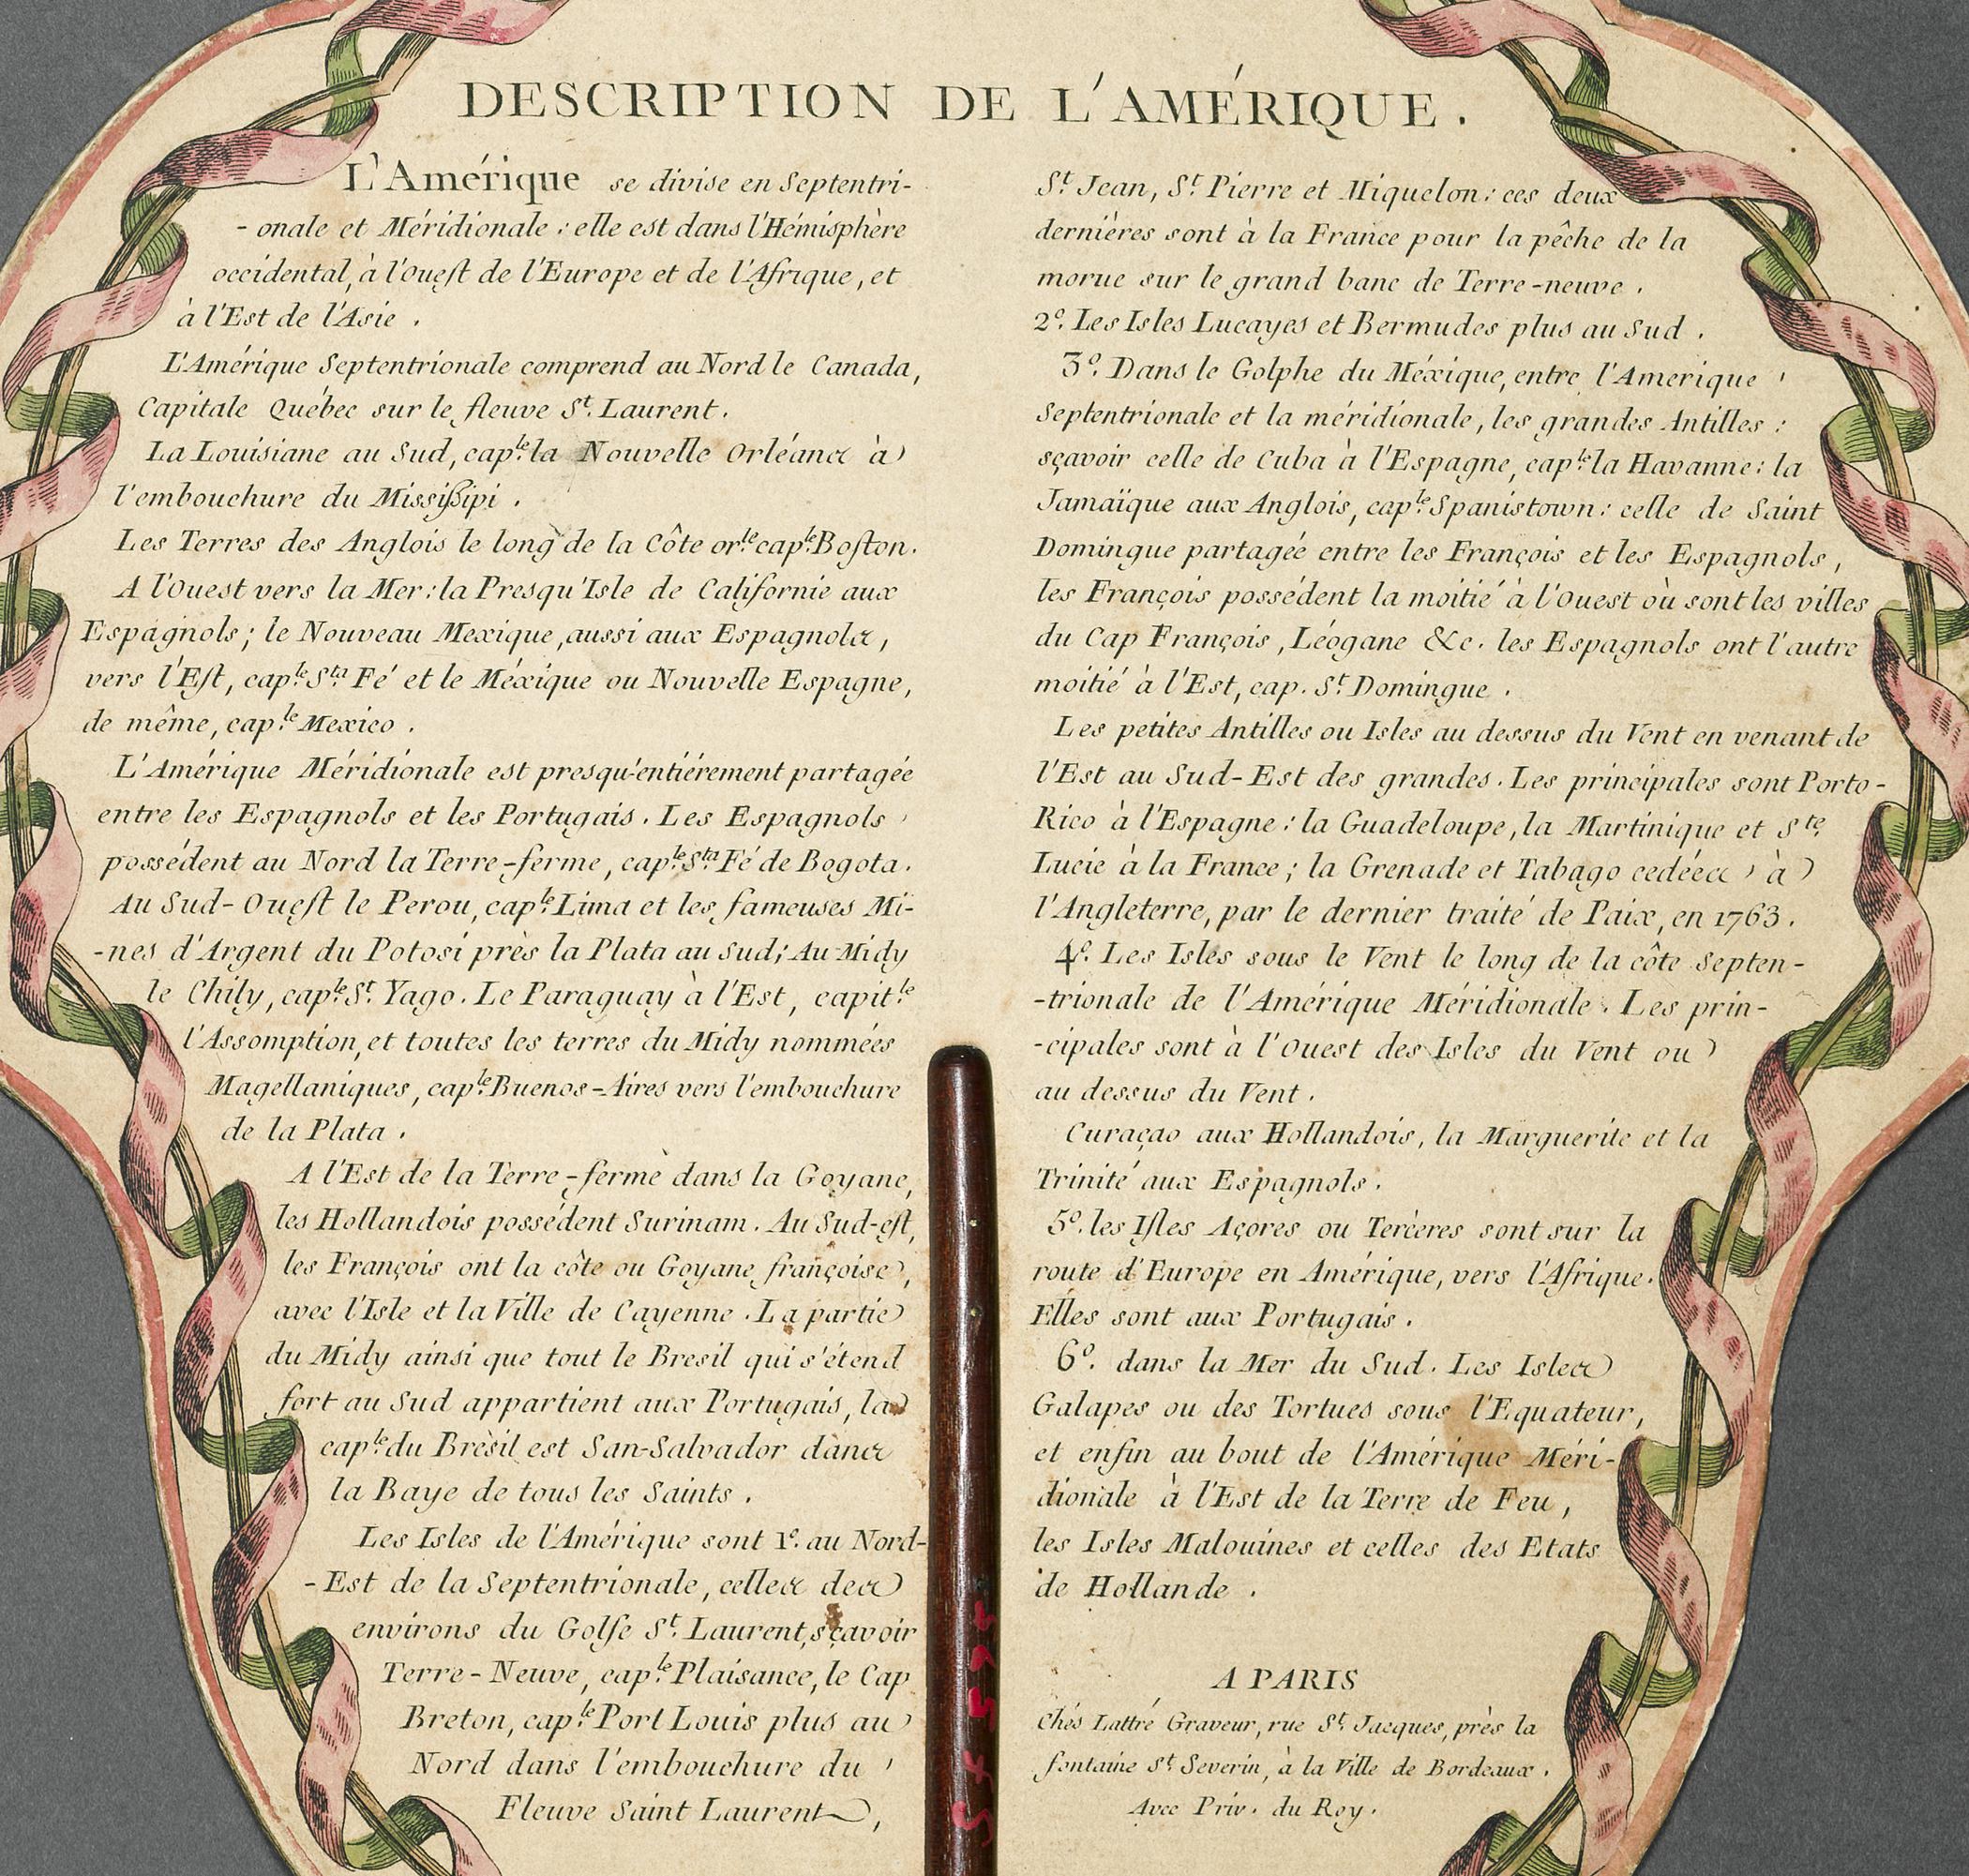 DESCRIPTION DE L'AMÉRIQUE.
L'Amérique se divise en Septentri-
-onale et Méridionale : elle est dans l'Hémisphère
occidental, à l'ouest de l'Europe et de l'Afrique, et
à l'Est de l'Asie .
L'Amérique Septentrionale comprend au Nord le Canada,
Capitale Québec sur le fleuve St. Laurent.
La Louisiane au Sud, cap.le la Nouvelle Orléans à
l'embouchure du Missißipi .
Les Terres des Anglois le long de la Côte or.le cap.le Boston.
A l'Ouest vers la Mer : la Presqu'Isle de Californie aux
Espagnols; le Nouveau Mexique, aussi aux Espagnols,
vers l'Est, cap.le Sta Fé et le Méxique ou Nouvelle Espagne,
de même, cap.le Mexico .
L'Amérique Méridionale est presqu'entiérement partagée
entre les Espagnols et les Portugais. Les Espagnols
possédent au Nord la Terre-ferme, cap.le Sta Fé de Bogota.
Au Sud-Ouest le Perou, cap.le Lima et les fameuses Mi-
-nes d'Argent du Potosi près la Plata au Sud; Au Midy
le Chily, cap.le St. Yago. Le Paraguay à l'Est, capit.le
l'Assomption, et toutes les terres du Midy nommées
Magellaniques, cap.le Buenos-Aires vers l'embouchure
de la Plata .
A l'Est de la Terre-ferme dans la Goyane,
les Hollandois possédent Surinam. Au Sud-est,
les François ont la côte ou Goyane françoise,
avec l'Isle et la Ville de Cayenne. La partie
du Midy ainsi que tout le Bresil qui s'étend
fort au Sud appartient aux Portugais, la
cap.le du Brèsil est San-Salvador dans
la Baye de tous les Saints .
Les Isles de l'Amérique sont 1º. au Nord-
-Est de la Septentrionale, celles des
environs du Golfe St. Laurent, sçavoir
Terre-Neuve, cap.le Plaisance, le Cap
Breton, cap.le Port Louis plus au
Nord dans l'embouchure du
Fleuve Saint Laurent,
St. Jean, St. Pierre et Miquelon : ces deux
dernières sont à la France pour la pêche de la
morue sur le grand banc de Terre-neuve .
2º. Les Isles Lucayes et Bermudes plus au Sud .
3º. Dans le Golphe du Méxique, entre l'Amerique
Septentrionale et la méridionale, les grandes Antilles :
sçavoir celle de Cuba à l'Espagne, cap.le la Havanne : la
Jamaïque aux Anglois, cap.le Spanistown : celle de Saint
Domingue partagée entre les François et les Espagnols,
les François possédent la moitié à l'Ouest où sont les villes
du Cap François, Léogane &c. les Espagnols ont l'autre
moitié à l'Est, cap. St. Domingue .
Les petites Antilles ou Isles au dessus du Vent en venant de
l'Est au Sud-Est des grandes. Les principales sont Porto-
Rico à l'Espagne : la Guadeloupe, la Martinique et Ste.
Lucie à la France; la Grenade et Tabago cedées à
l'Angleterre, par le dernier traité de Paix, en 1763.
4º. Les Isles sous le Vent le long de la côte Septen-
-trionale de l'Amérique Méridionale. Les prin-
-cipales sont à l'Ouest des Isles du Vent ou
au dessus du Vent .
Curaçao aux Hollandois, la Marguerite et la
Trinité aux Espagnols.
5º. les Isles Açores ou Terceres sont sur la
route d'Europe en Amérique, vers l'Afrique.
Elles sont aux Portugais .
6º. dans la Mer du Sud. Les Isles
Galapes ou des Tortues sous l'Equateur,
et enfin au bout de l'Amérique Méri-
dionale à l'Est de la Terre de Feu,
les Isles Malouines et celles des Etats
de Hollande .
A PARIS
Chés Lattré Graveur, rue St. Jacques, près la
fontaine St Severin, à la Ville de Bordeaux .
Avec Priv. du Roy.